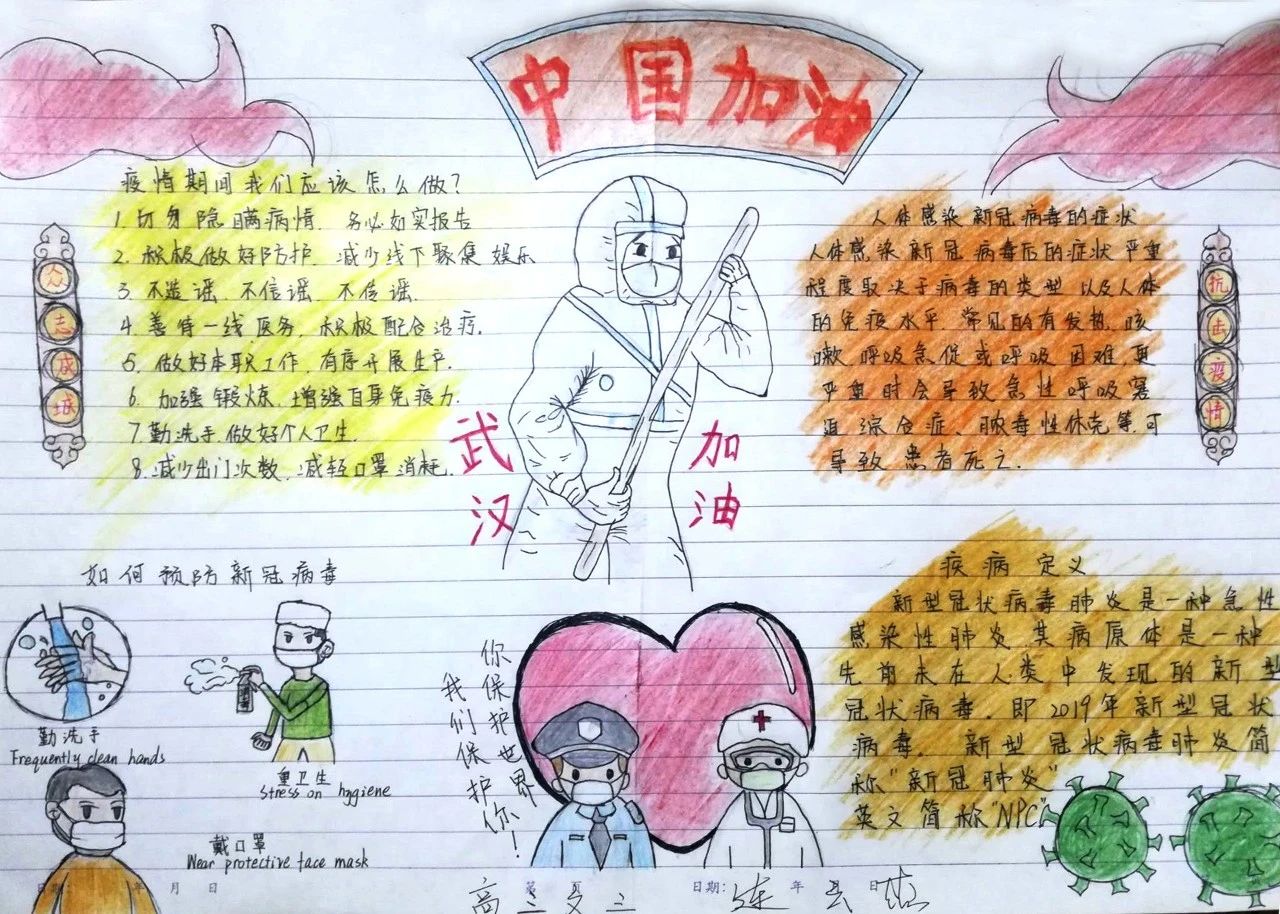 中国加油
疫情期间我们应该怎么做？
1. 切勿隐瞒病情，务必如实报告
2. 积极做好防护，减少线下聚集娱乐
3. 不造谣、不信谣、不传谣.
4. 善待一线医务，积极配合治疗.
5. 做好本职工作，有序开展生产.
6. 加强锻炼，增强自身免疫力.
7. 勤洗手，做好个人卫生.
8. 减少出门次数，减轻口罩消耗.
众志成城
武汉
加油
人体感染新冠病毒的症状
人体感染新冠病毒后的症状严重
程度取决于病毒的类型以及人体
的免疫水平 常见的有发热、咳
嗽 呼吸急促或呼吸困难，再
严重时会导致急性呼吸窘
迫综合症、脓毒性休克等，可
导致患者死亡.
抗击疫情
如何预防新冠病毒
勤洗手
Frequently clean hands
重卫生
Stress on hygiene
戴口罩
Wear protective face mask
你保护世界
我们保护你！
疾病定义
新型冠状病毒肺炎是一种急性
感染性肺炎，其病原体是一种
先前未在人类中发现的新型
冠状病毒，即2019年新型冠状
病毒。 新型冠状病毒肺炎简
称“新冠肺炎”
英文简称“NPC”
日期： 年 月 日
第 页
日期： 年 日
高三